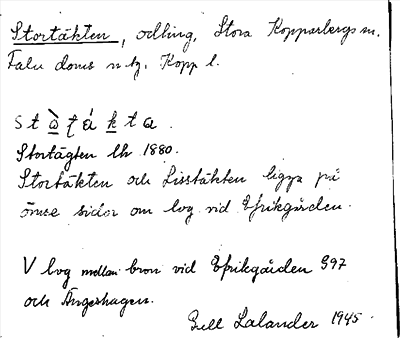 Stortäkten, odling, Stora Kopparbergs sn.
Falu doms. n tg. Kopp l.
s t ò ţ á k t a.
Stortägten lh 1880.
Stortäkten och Lisstäkten ligga på
ömse sidor om lvg vid Efrikgården.
V lvg mellan bron vid Efrikgården 397
och Ängeshagen.
Lalander 1945